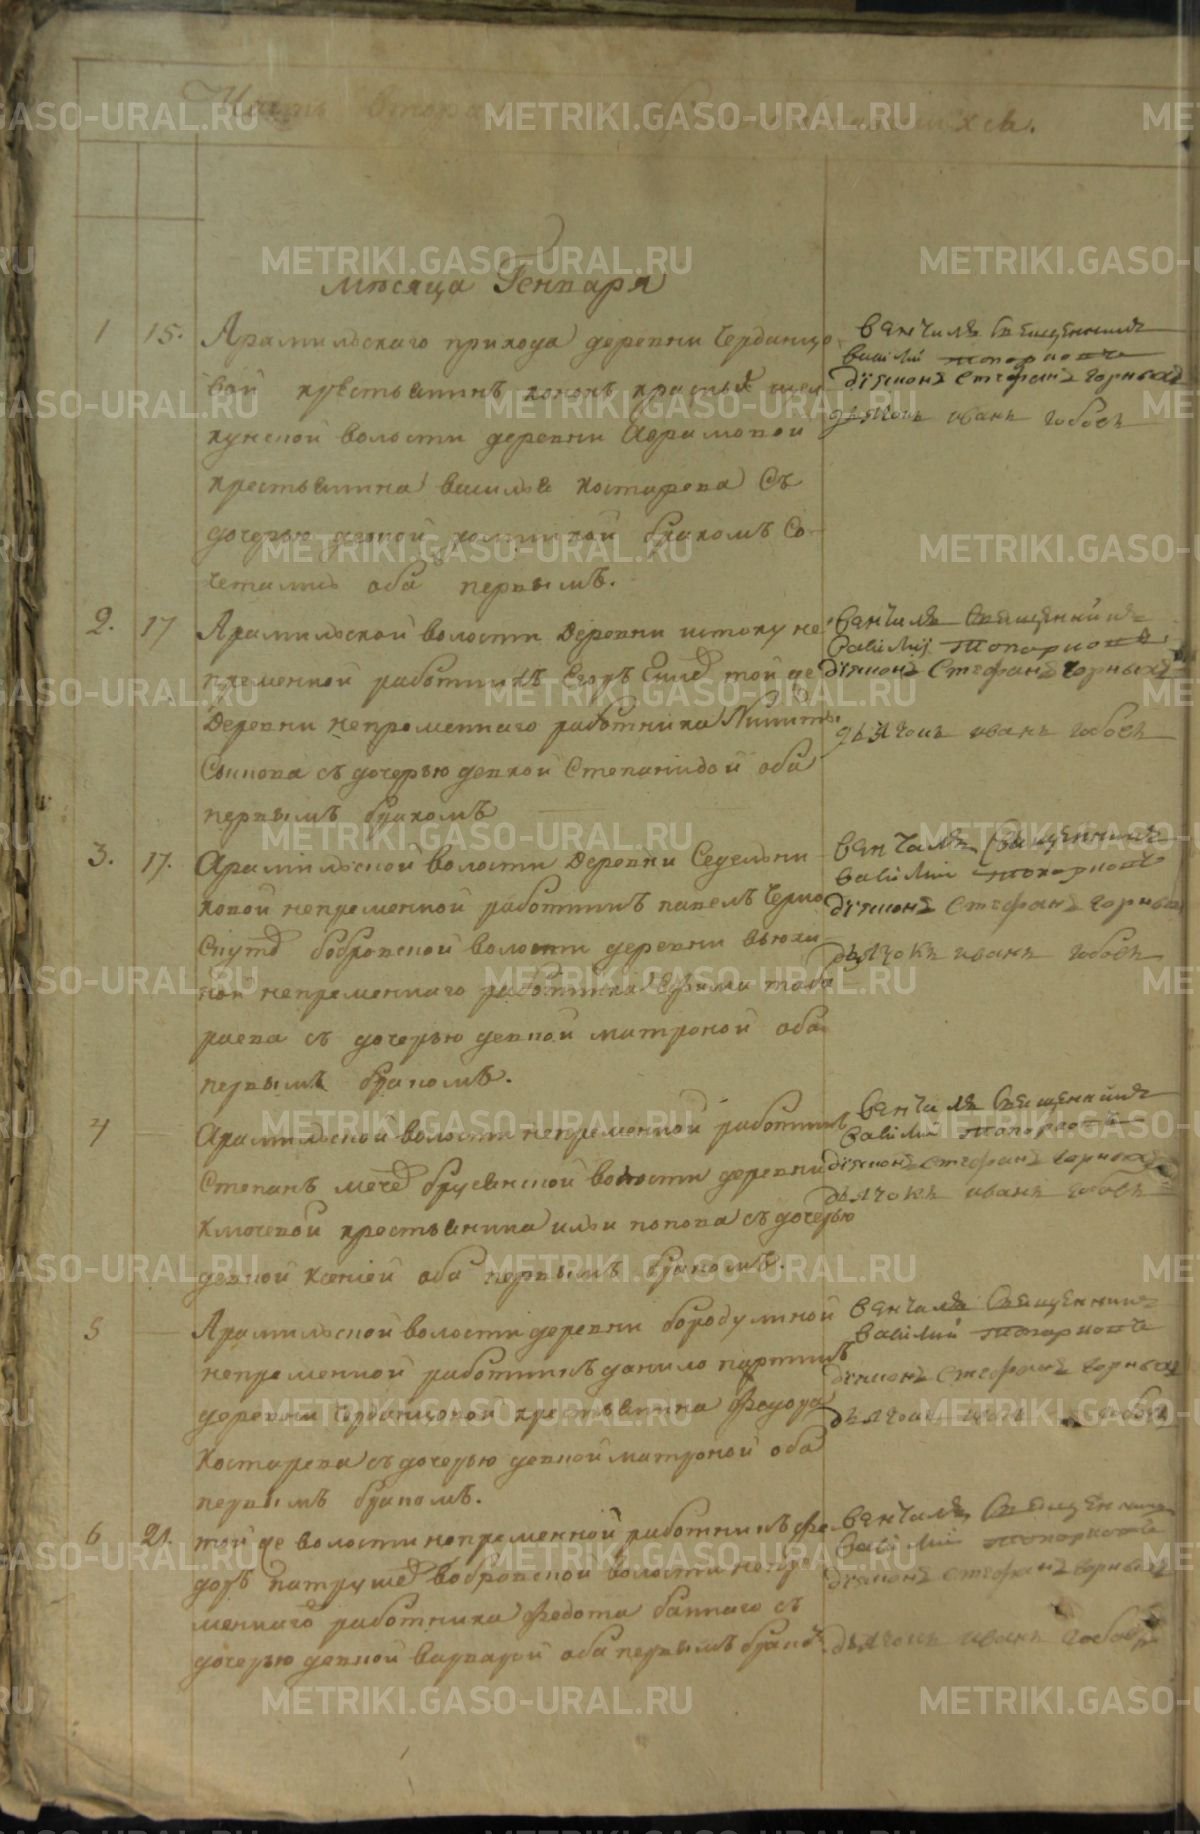 Часть вторая
месяца Генваря
1 15. Арамильскаго прихода деревни Черданцо
вой крестьянинъ кононъ красных щел
кунской волости деревни Аврамовой
крестьянина василья костарева Съ
дочерью девкой бракомъ Со
четались оба первымъ.
венчалъ Священникъ
василий топорковъ
дїяконъ стефанъ чорныхъ
дьячокъ иванъ
2. 17 Арамильской волости деревни истоку не
пременной работникъ Егоръ той де
деревни непременнаго работника Никиты
с дочерью девкой Степанидой оба
первымъ бракомъ
венчалъ Священникъ
василий топорковъ
дїяконъ Стефанъ чорныхъ
дьячокъ иванъ
3. 17. Арамильской волости деревни Седельни
ковой непременной работникъ павелъ Черно
скут бобровской волости деревни вьюхи
ной непременнаго работника Ефима таба
раева съ дочерью девкой матроной оба
первымъ бракомъ.
венчалъ Священникъ
василий топорковъ
дїяконъ Стефанъ чорных
дьячокъ иванъ
4 Арамильской волости непременной работникъ
Степанъ брусянской волости деревни
ключевой крестьянина ильи попова съ дочерью
девкой ксенїей оба первымъ бракомъ.
венчалъ Священникъ
василий топорковъ
дїяконъ стефанъ чорныхъ
дьячокъ иванъ
5 Арамильской волости деревни бородулиной
непременной работникъ данило паршинъ
деревни Черданцовой крестьянина Федора
костарева съ дочерью девкой матроной оба
первымъ бракомъ.
венчалъ Священникъ
василий топорковъ
дїяконъ Стефанъ чорныхъ
дьячокъ иванъ
6 21. той же волости непременной работникъ фе
доръ патрушев бобровской волости непре
меннаго работника Федота баннаго съ
дочерью девкой варварой оба первымъ брако
венчалъ Священникъ
василий топорковъ
дїяконъ стефанъ чорныхъ
дьячокъ иванъ
METRIKI.GASO-URAL.RU